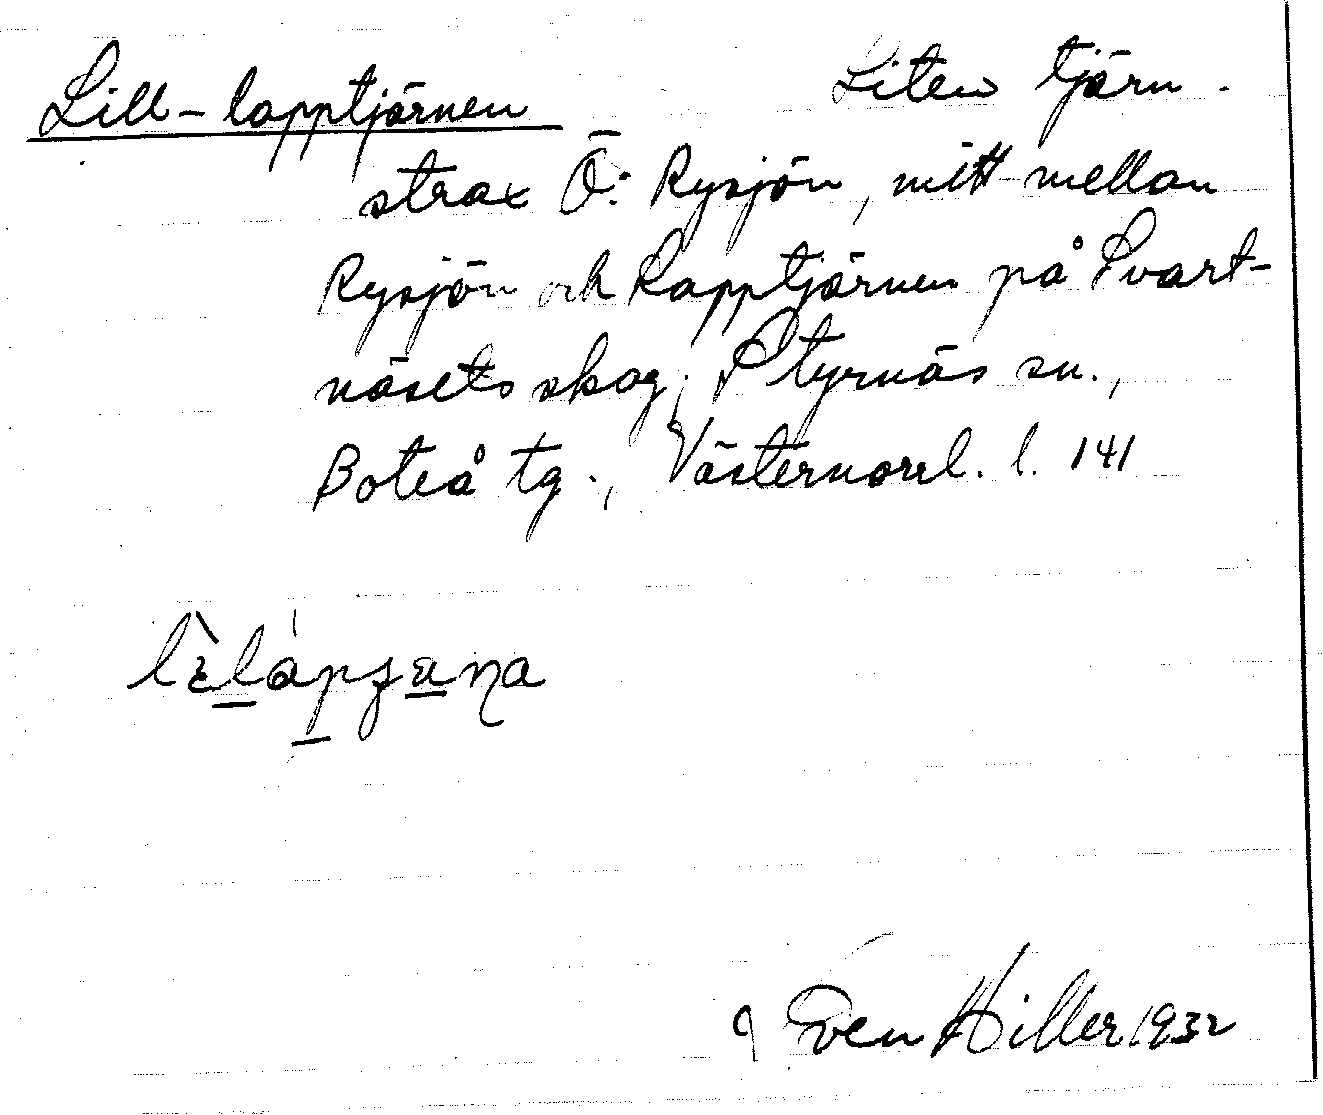 Lill-lapptjärnen Liten tjärn.
strax Ö: Rysjön, mitt mellan
Rysjön och Lapptjärnen på Svart-
näsets skog; Styrnäs sn.,
Boteå tg., Västernorrl. l. 141
Sven Hiller 1932